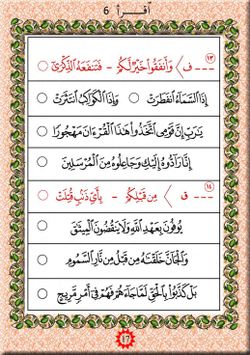 أقرأ 6
١٣ --- ف > وَأَنفِقُوا۟ خَيْرًا لَّكُمْ - فَتَنفَعَهُ ٱلذِّكْرَىٰٓ
إِذَا ٱلسَّمَآءُ ٱنفَطَرَتْ وَإِذَا ٱلْكَوَاكِبُ ٱنتَثَرَتْ
يَٰرَبِّ إِنَّ قَوْمِى ٱتَّخَذُوا۟ هَٰذَا ٱلْقُرْءَانَ مَهْجُورًا
إِنَّا رَآدُّوهُ إِلَيْكِ وَجَاعِلُوهُ مِنَ ٱلْمُرْسَلِينَ
١٤ --- ق > مِن قَبْلِكُمْ - بِأَىِّ ذَنۢبٍ قُتِلَتْ
يُوفُونَ بِعَهْدِ ٱللَّهِ وَلَا يَنقُضُونَ ٱلْمِيثَٰقَ
وَٱلْجَآنَّ خَلَقْنَٰهُ مِن قَبْلُ مِن نَّارِ ٱلسَّمُومِ
بَلْ كَذَّبُوا۟ بِٱلْحَقِّ لَمَّا جَآءَهُمْ فَهُمْ فِىٓ أَمْرٍ مَّرِيجٍ
17